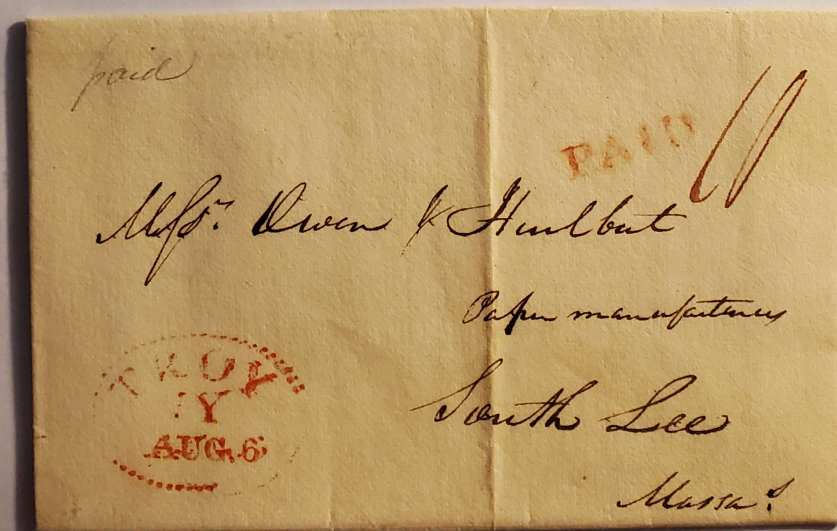 paid
PAID 10
Messrs. Owen & Hurlbut
Paper manufacturers
South Lee
Massas.
TROY
NY
AUG. 6